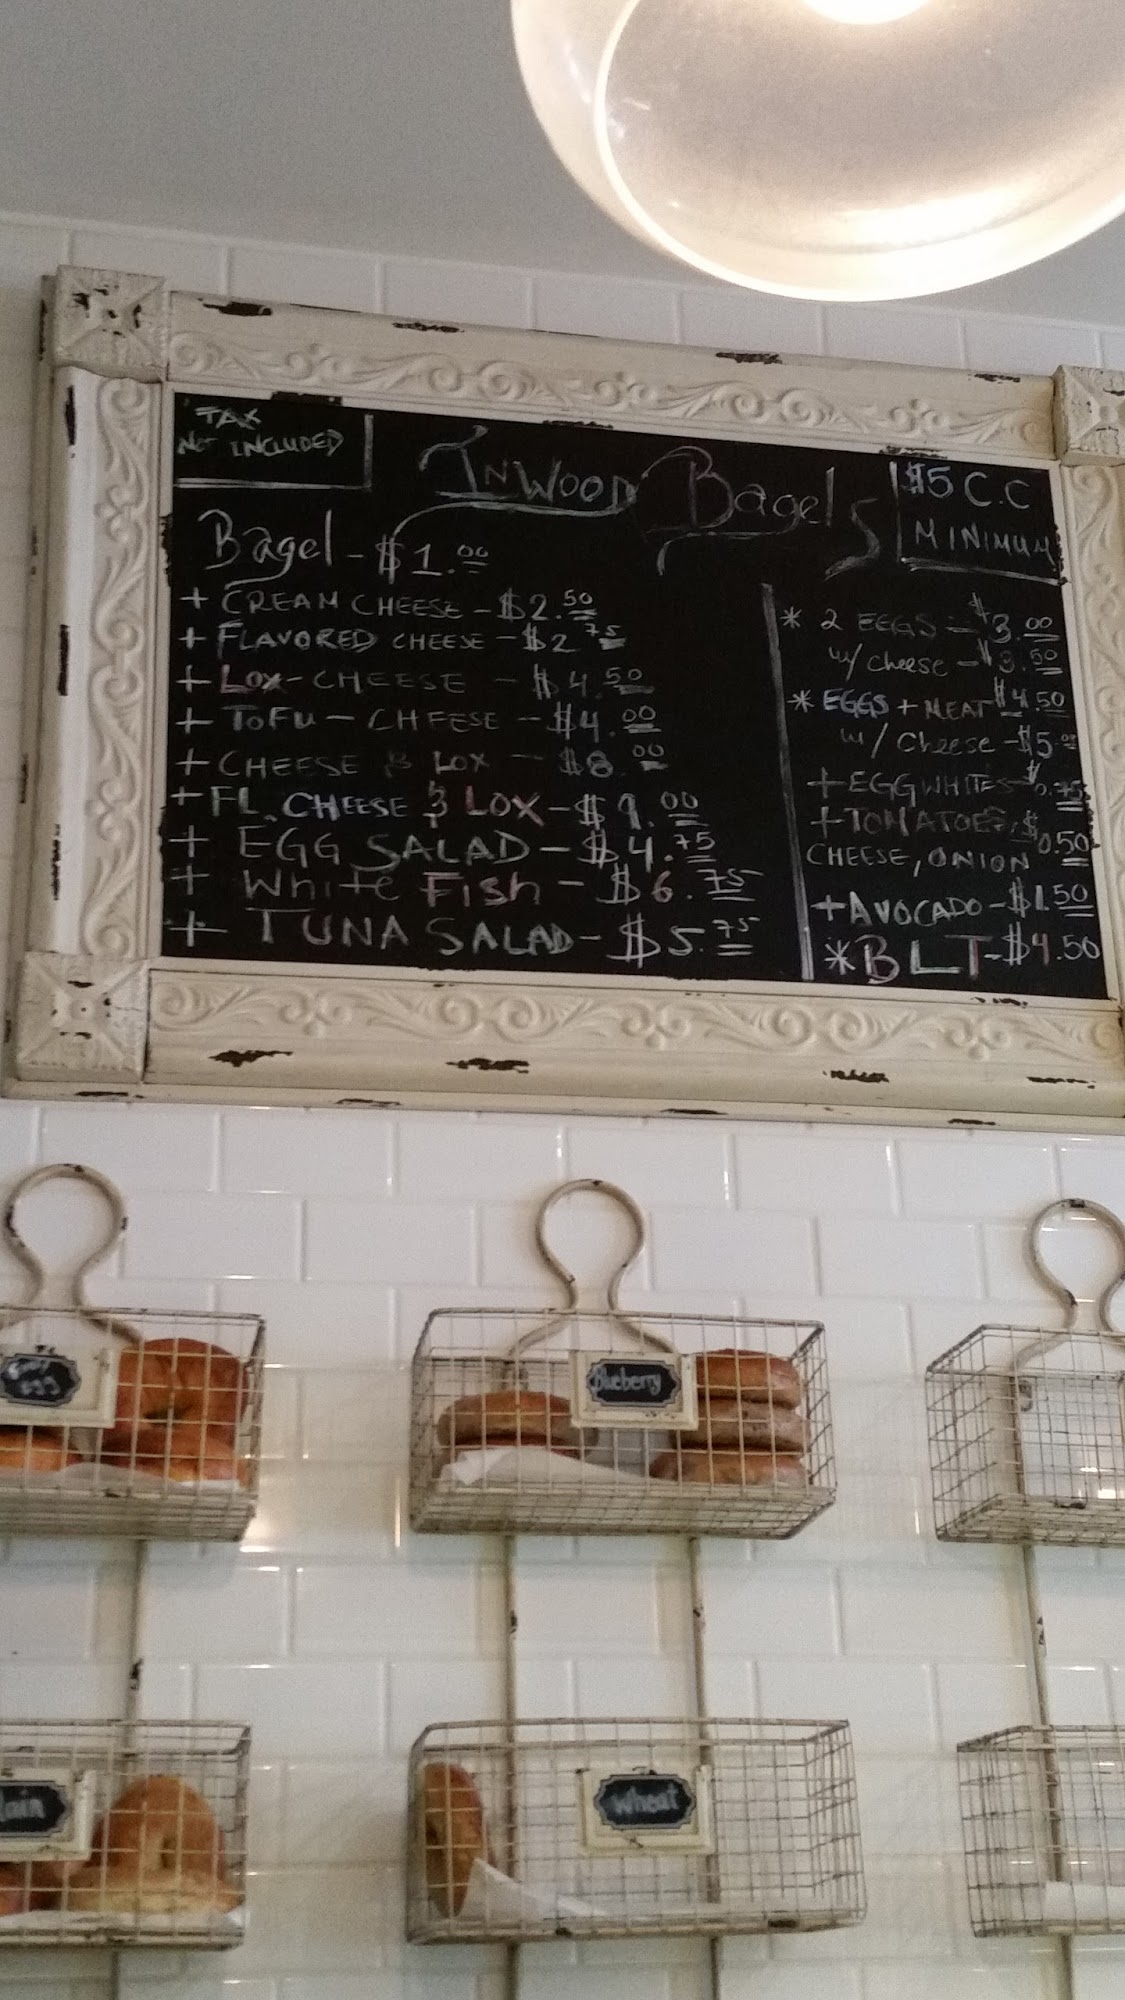 TAX
NOT INCLUDED
INWOOD Bagels
$5 C.C
MINIMUM
Bagel - $1.00
+ CREAM CHEESE - $2.50
+ FLAVORED CHEESE - $2.75
+ LOX - CHEESE - $4.50
+ TOFU - CHEESE - $4.00
+ CHEESE & LOX - $8.00
+ FL. CHEESE & LOX - $9.00
+ EGG SALAD - $4.75
+ White Fish - $6.75
+ TUNA SALAD - $5.75
* 2 EGGS - $3.00
w/ cheese - $3.50
* EGGS + MEAT $4.50
w/ Cheese - $5.00
+ EGG WHITES - $0.75
+ TOMATOES, $0.50
CHEESE, ONION
+ AVOCADO - $1.50
* BLT - $4.50
egg
Blueberry
lain
Wheat